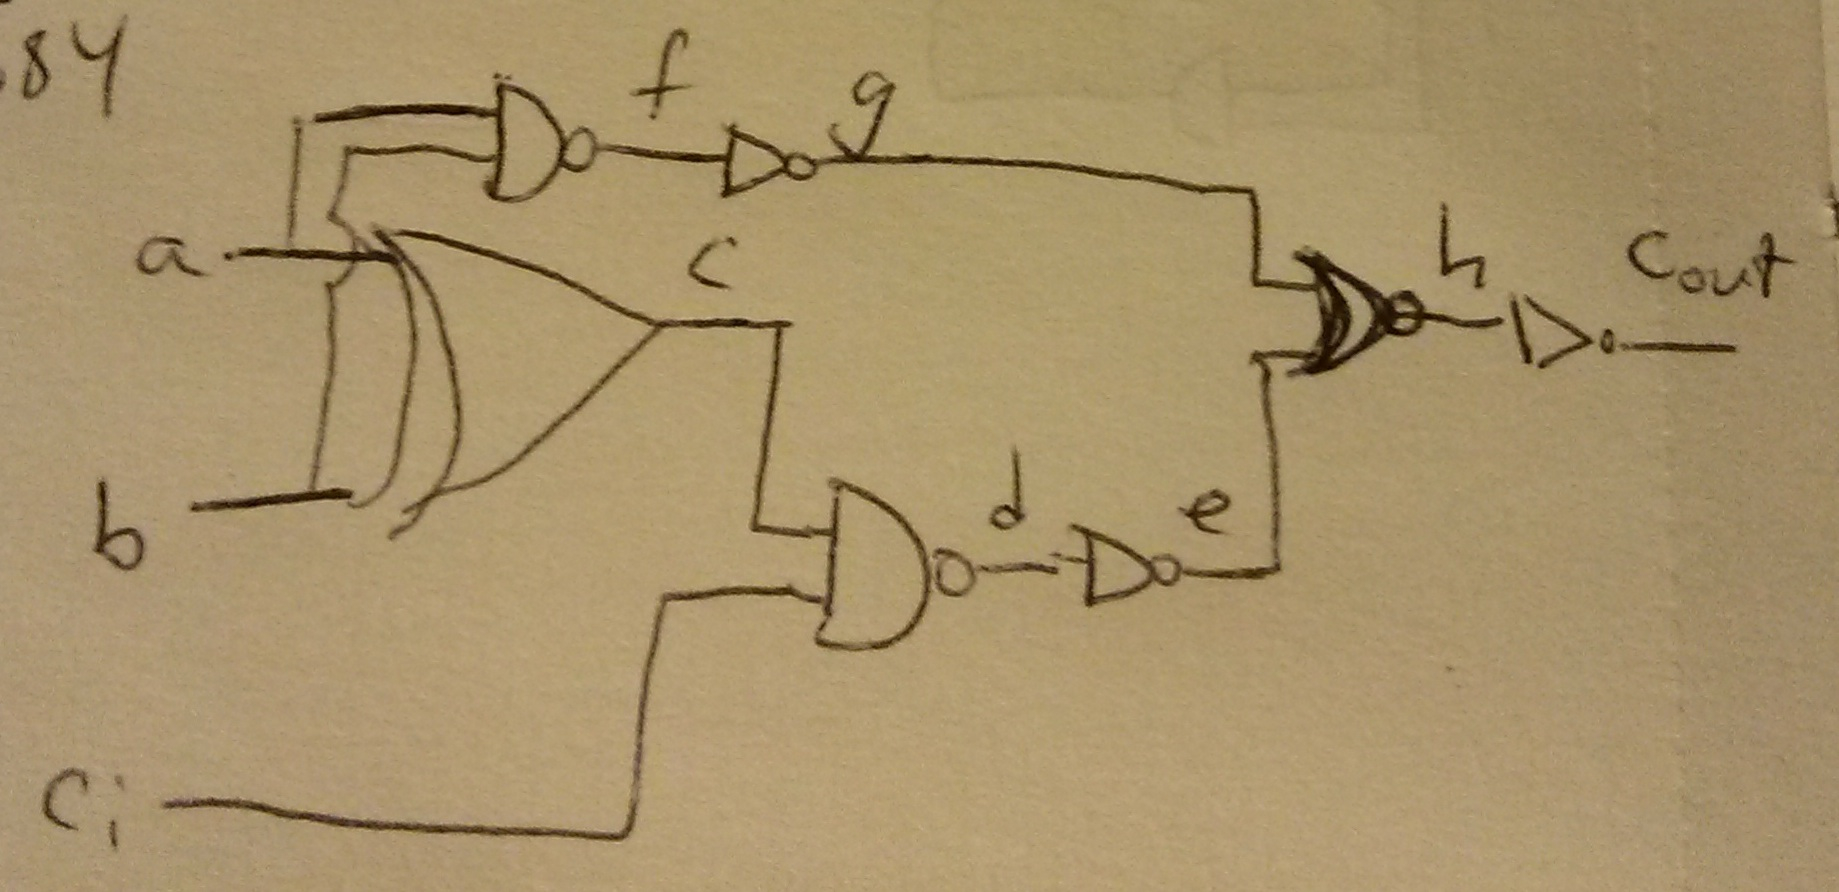 84
f
g
a
c
h
Cout
b
d
e
Ci